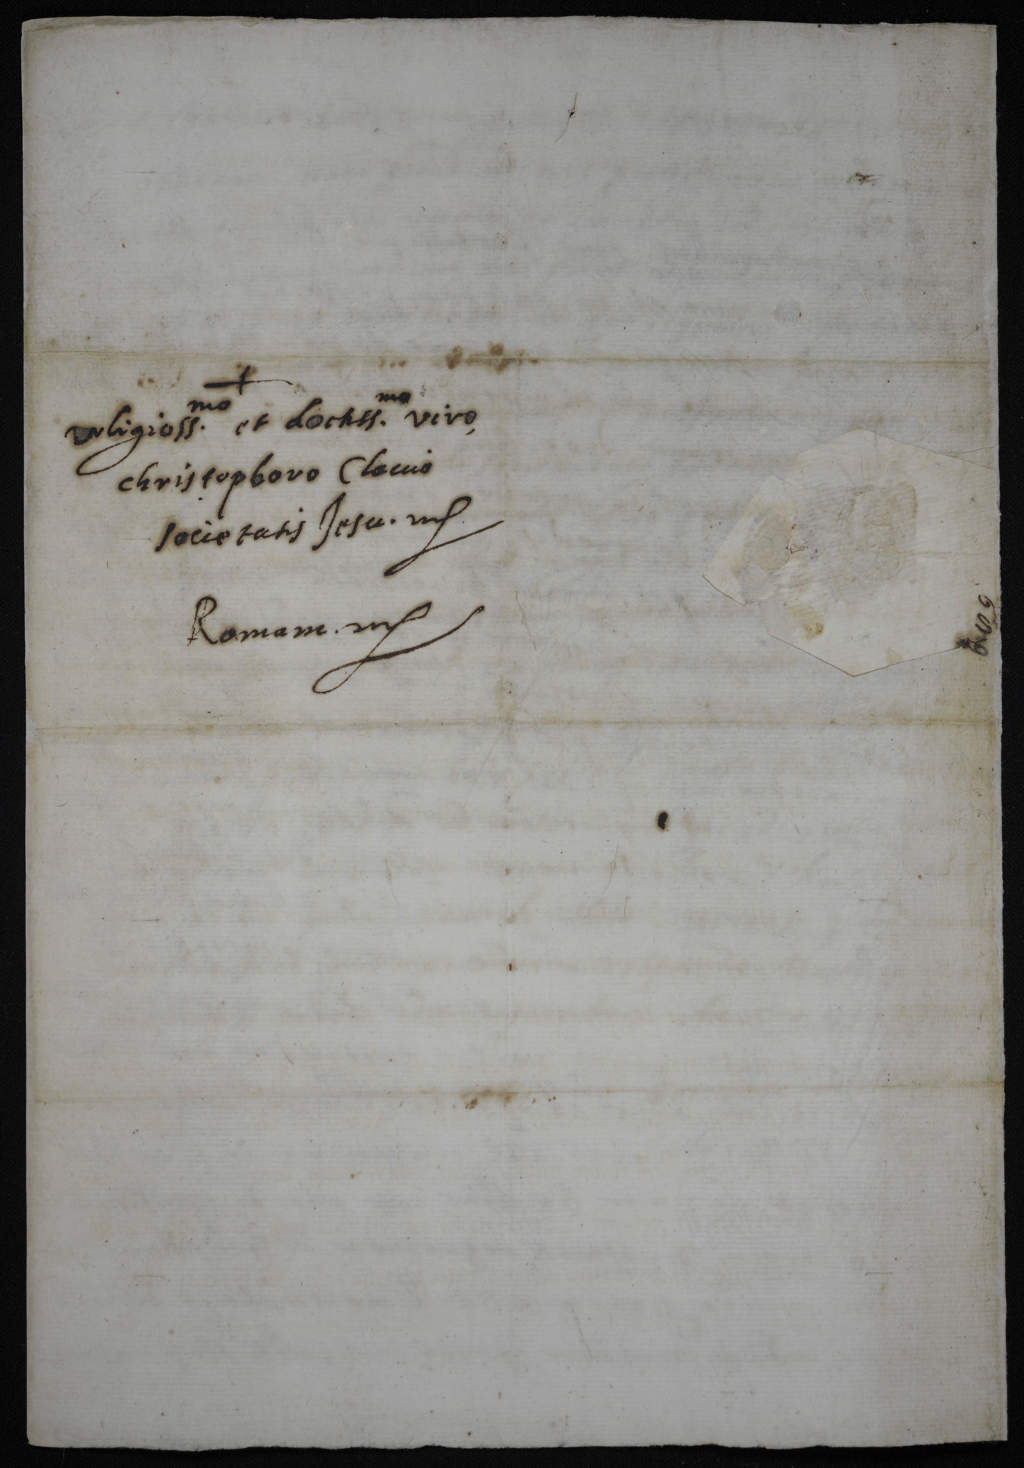 +
religioss.mo et doctiss.mo viro,
christophoro Clavio
societatis Jesu.
Romam.